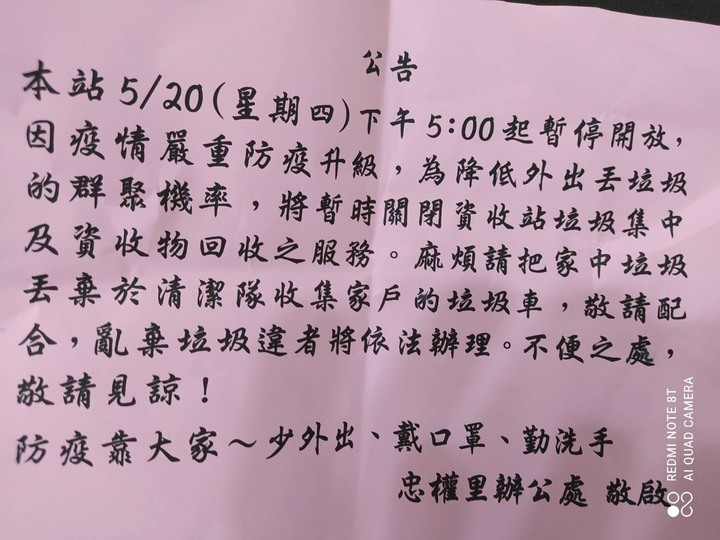 公告
本站5/20(星期四)下午5:00起暫停開放，
因疫情嚴重防疫升級，為降低外出丟垃圾
的群聚機率，將暫時關閉資收站垃圾集中
及資收物回收之服務。麻煩請把家中垃圾
丟棄於清潔隊收集家戶的垃圾車，敬請配
合，亂棄垃圾違者將依法辦理。不便之處，
敬請見諒！
防疫靠大家～少外出、戴口罩、勤洗手
忠權里辦公處 敬啟
REDMI NOTE 8T
AI QUAD CAMERA